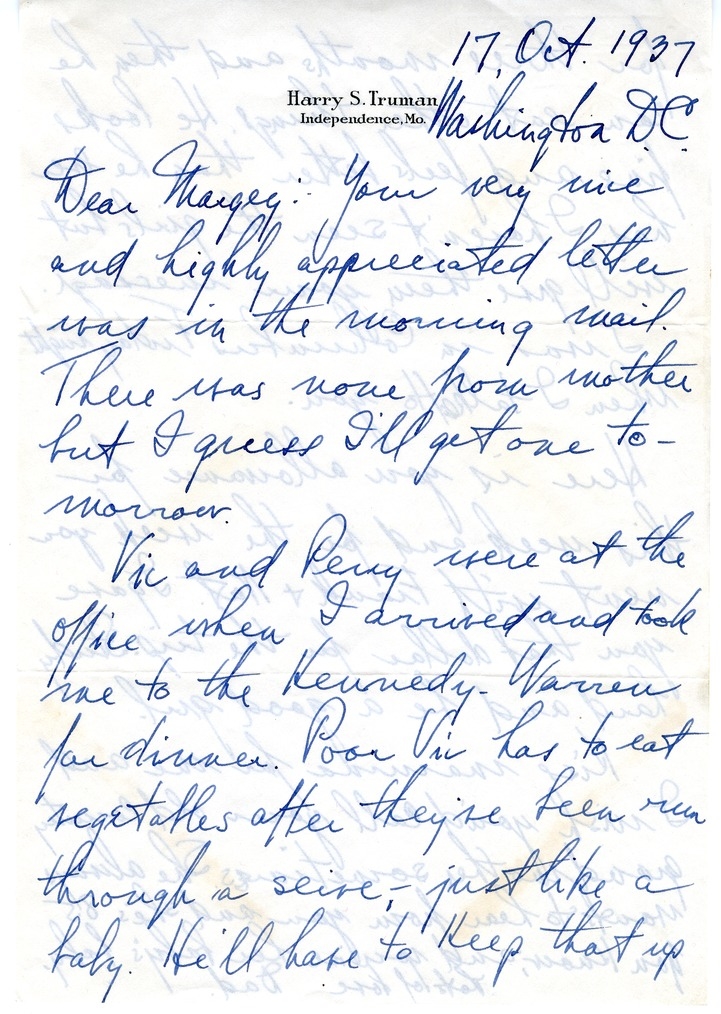 17, Oct. 1937
Harry S. Truman
Independence, Mo.
Washington D.C.
Dear Margey:- Your very nice
and highly appreciated letter
was in the morning mail.
There was none from mother
but I guess I'll get one to-
morrow.
Vic and Perry were at the
office when I arrived and took
me to the Kennedy-Warren
for dinner. Poor Vic has to eat
vegetables after they've been run
through a seive,- just like a
baby. He'll have to keep that up